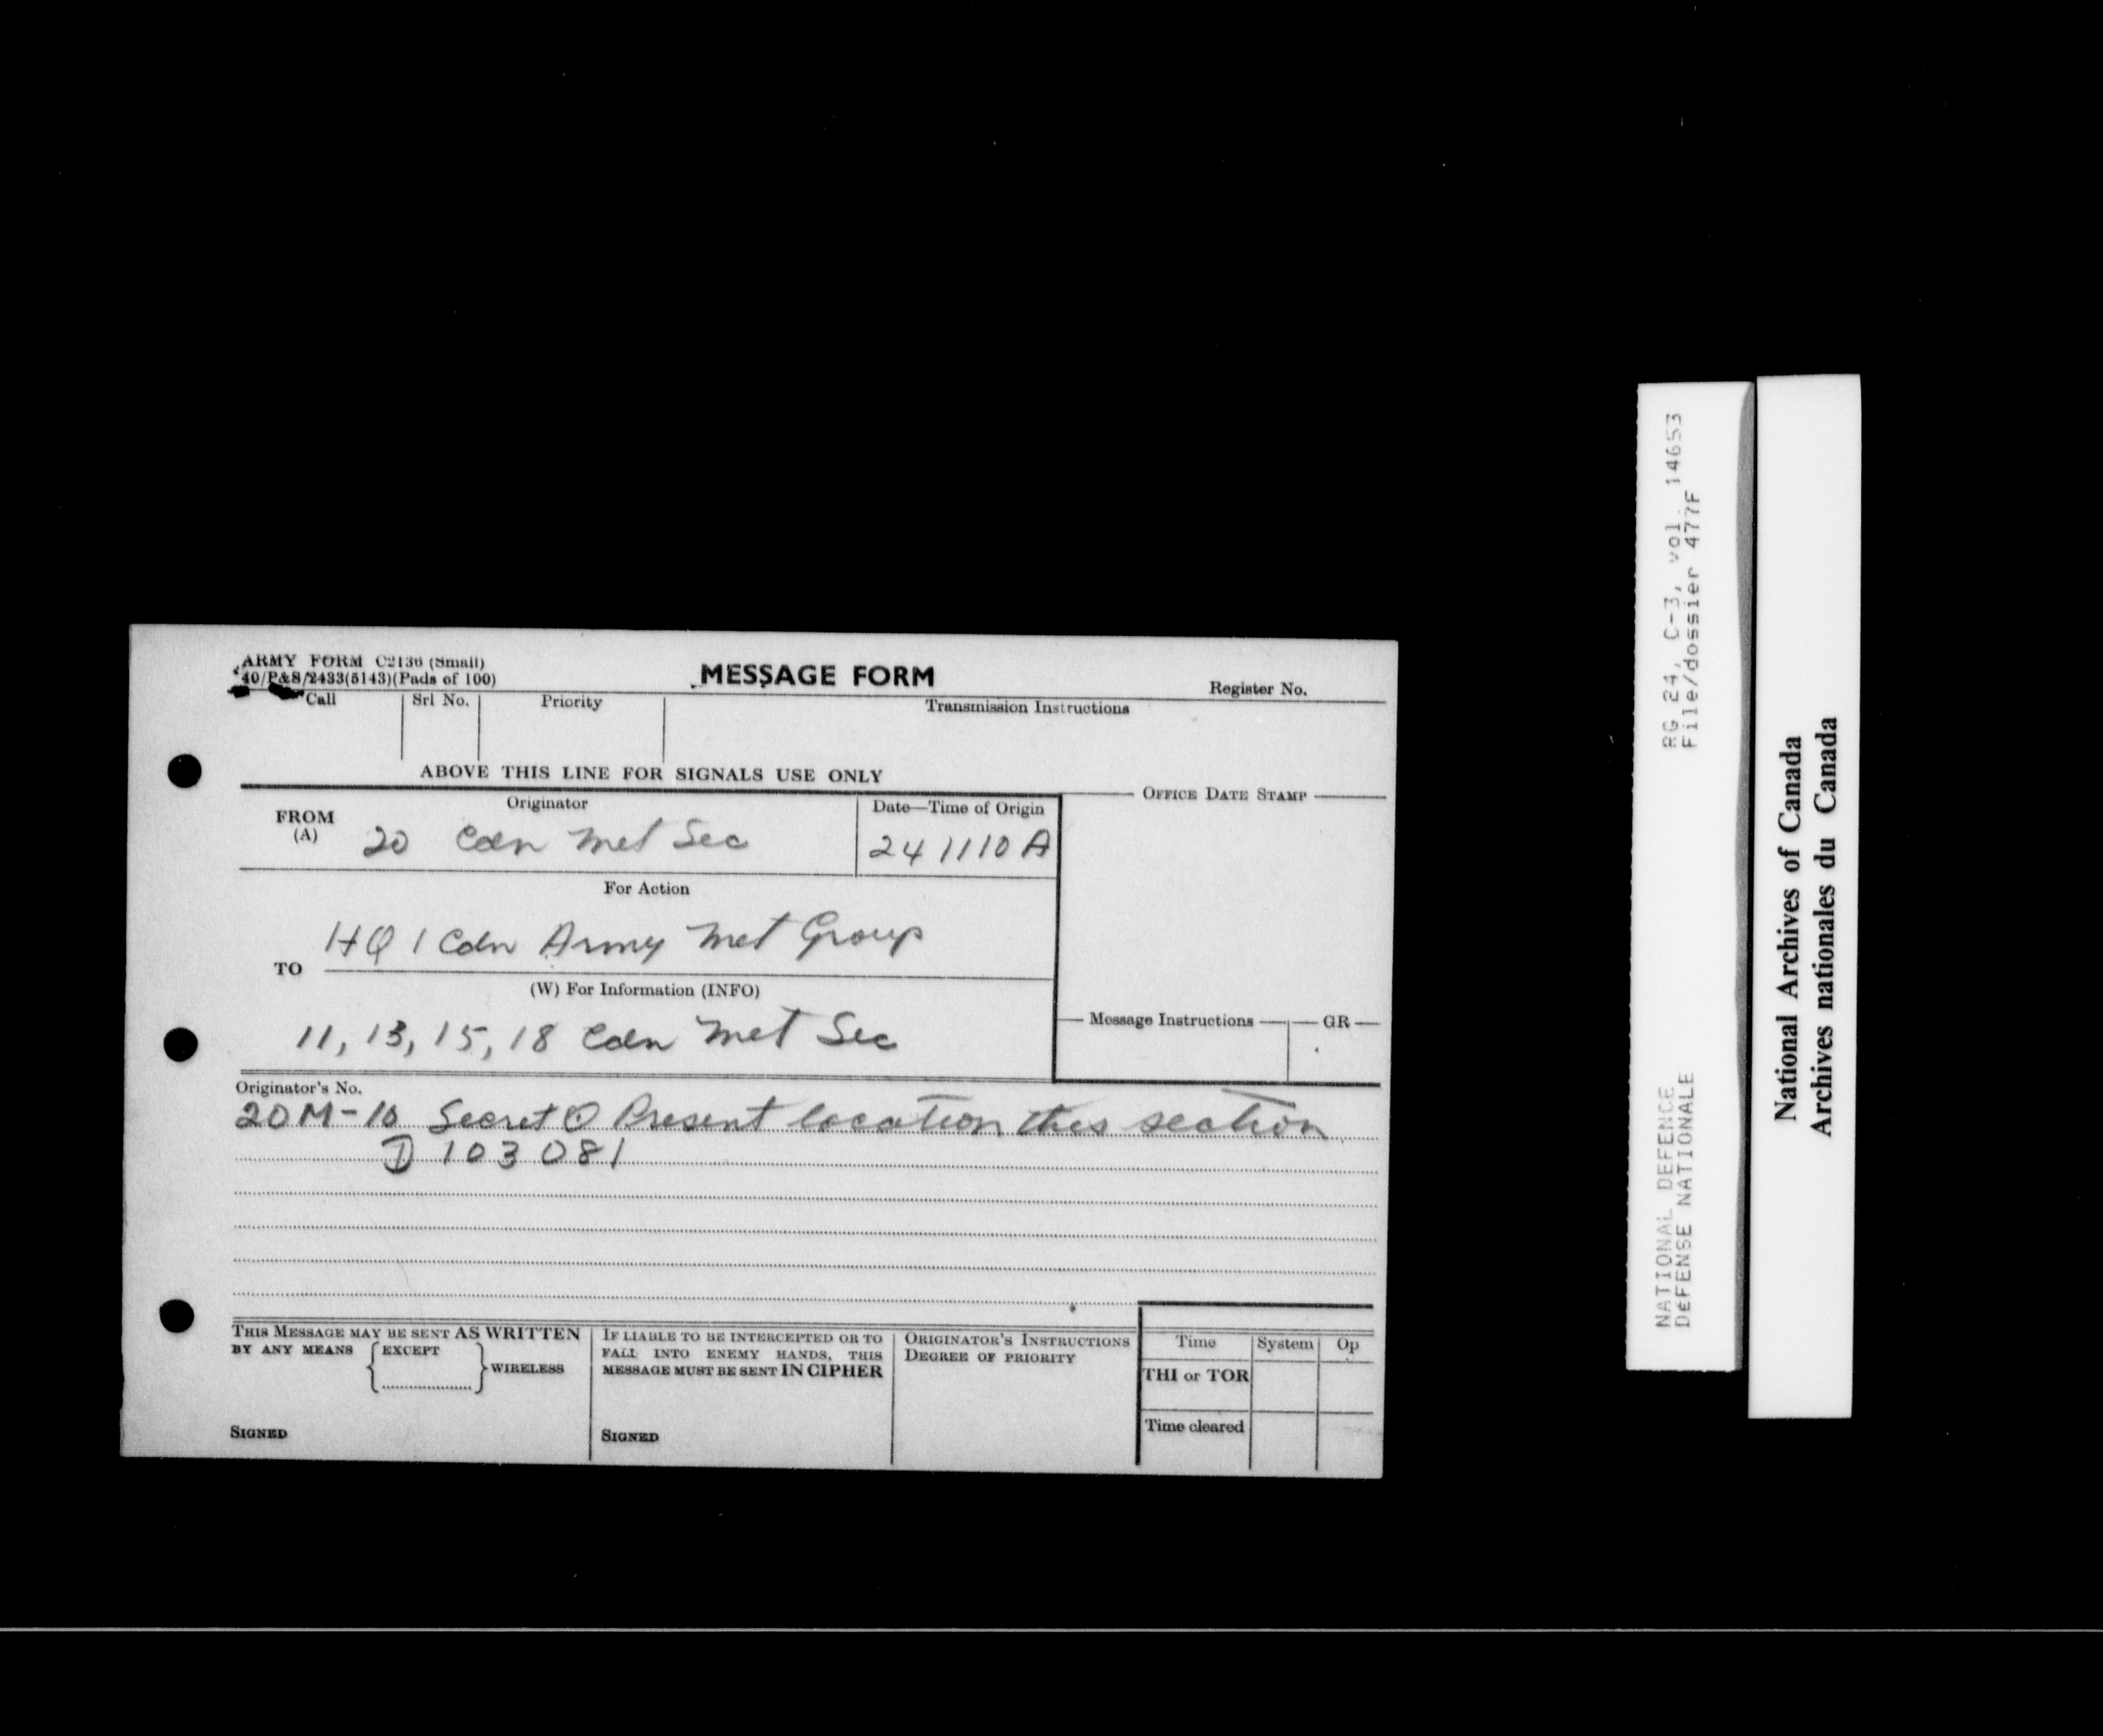 ARMY FORM C2136 (Small)
40/P&S/2433(5143)(Pads of 100)
MESSAGE FORM
Register No.
Call
Srl No.
Priority
Transmission Instructions
ABOVE THIS LINE FOR SIGNALS USE ONLY
FROM
(A)
Originator
20 Cdn Met Sec
Date—Time of Origin
241110A
OFFICE DATE STAMP
For Action
TO
HQ 1 Cdn Army Met Group
(W) For Information (INFO)
11, 13, 15, 18 Cdn Met Sec
Message Instructions
GR
Originator's No.
20M-10 Secret O Present location this section
D 103081
THIS MESSAGE MAY BE SENT AS WRITTEN
BY ANY MEANS { EXCEPT } WIRELESS
SIGNED
IF LIABLE TO BE INTERCEPTED OR TO
FALL INTO ENEMY HANDS, THIS
MESSAGE MUST BE SENT IN CIPHER
SIGNED
ORIGINATOR'S INSTRUCTIONS
DEGREE OF PRIORITY
Time
System
Op
THI or TOR
Time cleared
NATIONAL DEFENCE RG 24, C-3, vol. 14653
DéFENSE NATIONALE File/dossier 477F
National Archives of Canada
Archives nationales du Canada